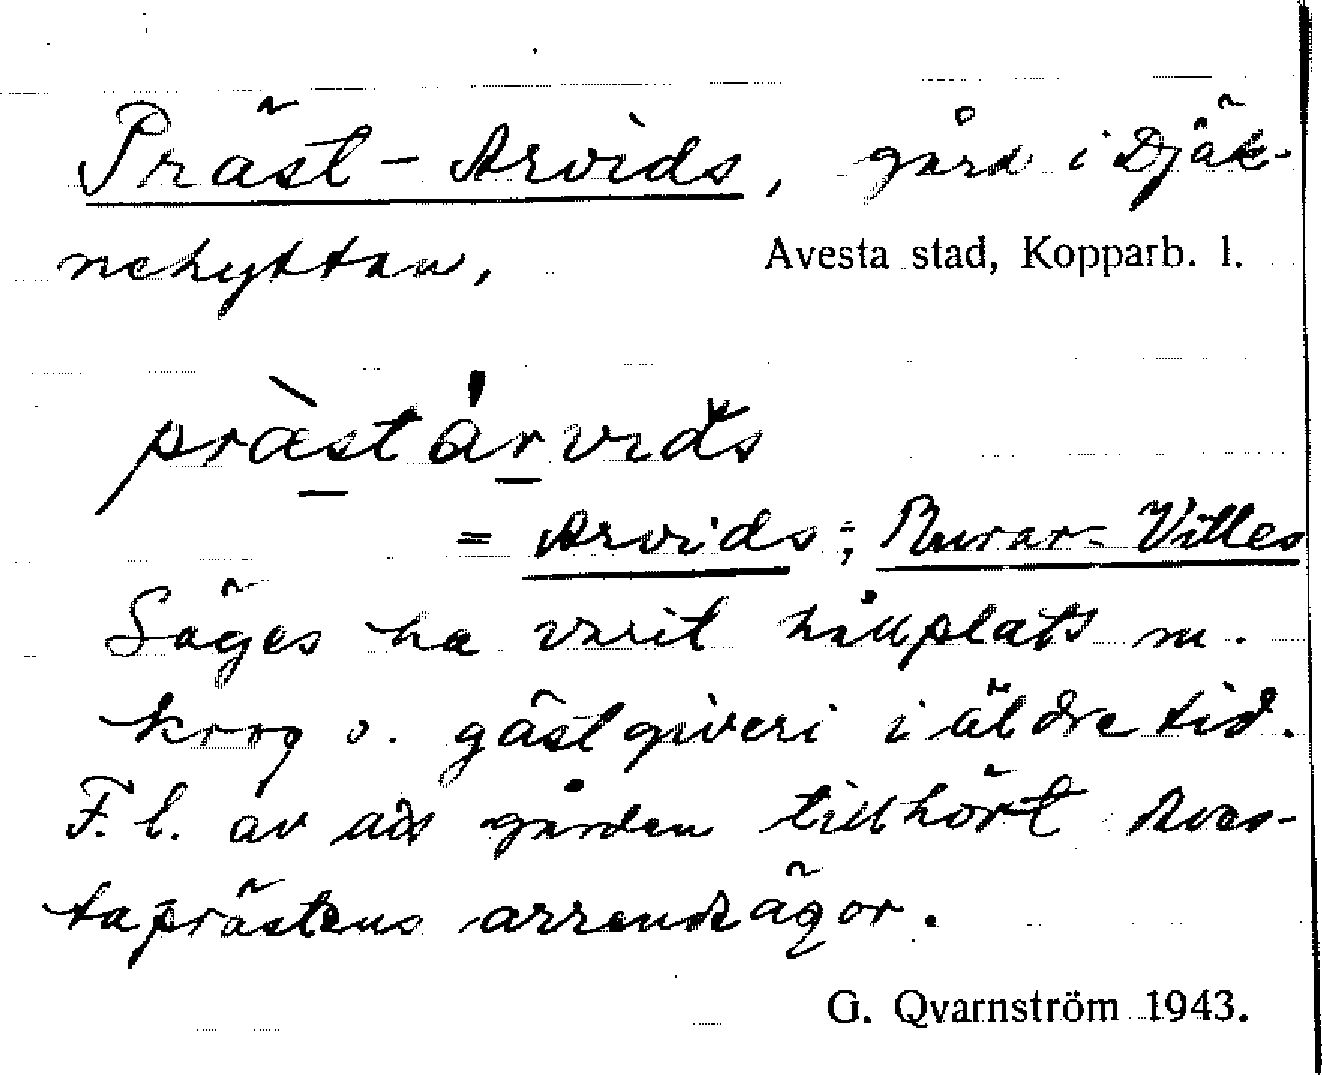 Präst-Arvids, gård i Djäk-
nehyttan, Avesta stad, Kopparb. l.
præ̀stárvids
= Arvids; Rurar-Villes
Säges ha varit hållplats m.
krog o. gästgiveri i äldre tid.
F. l. av att gården tillhört Aves-
taprästens arrendeägor.
G. Qvarnström 1943.